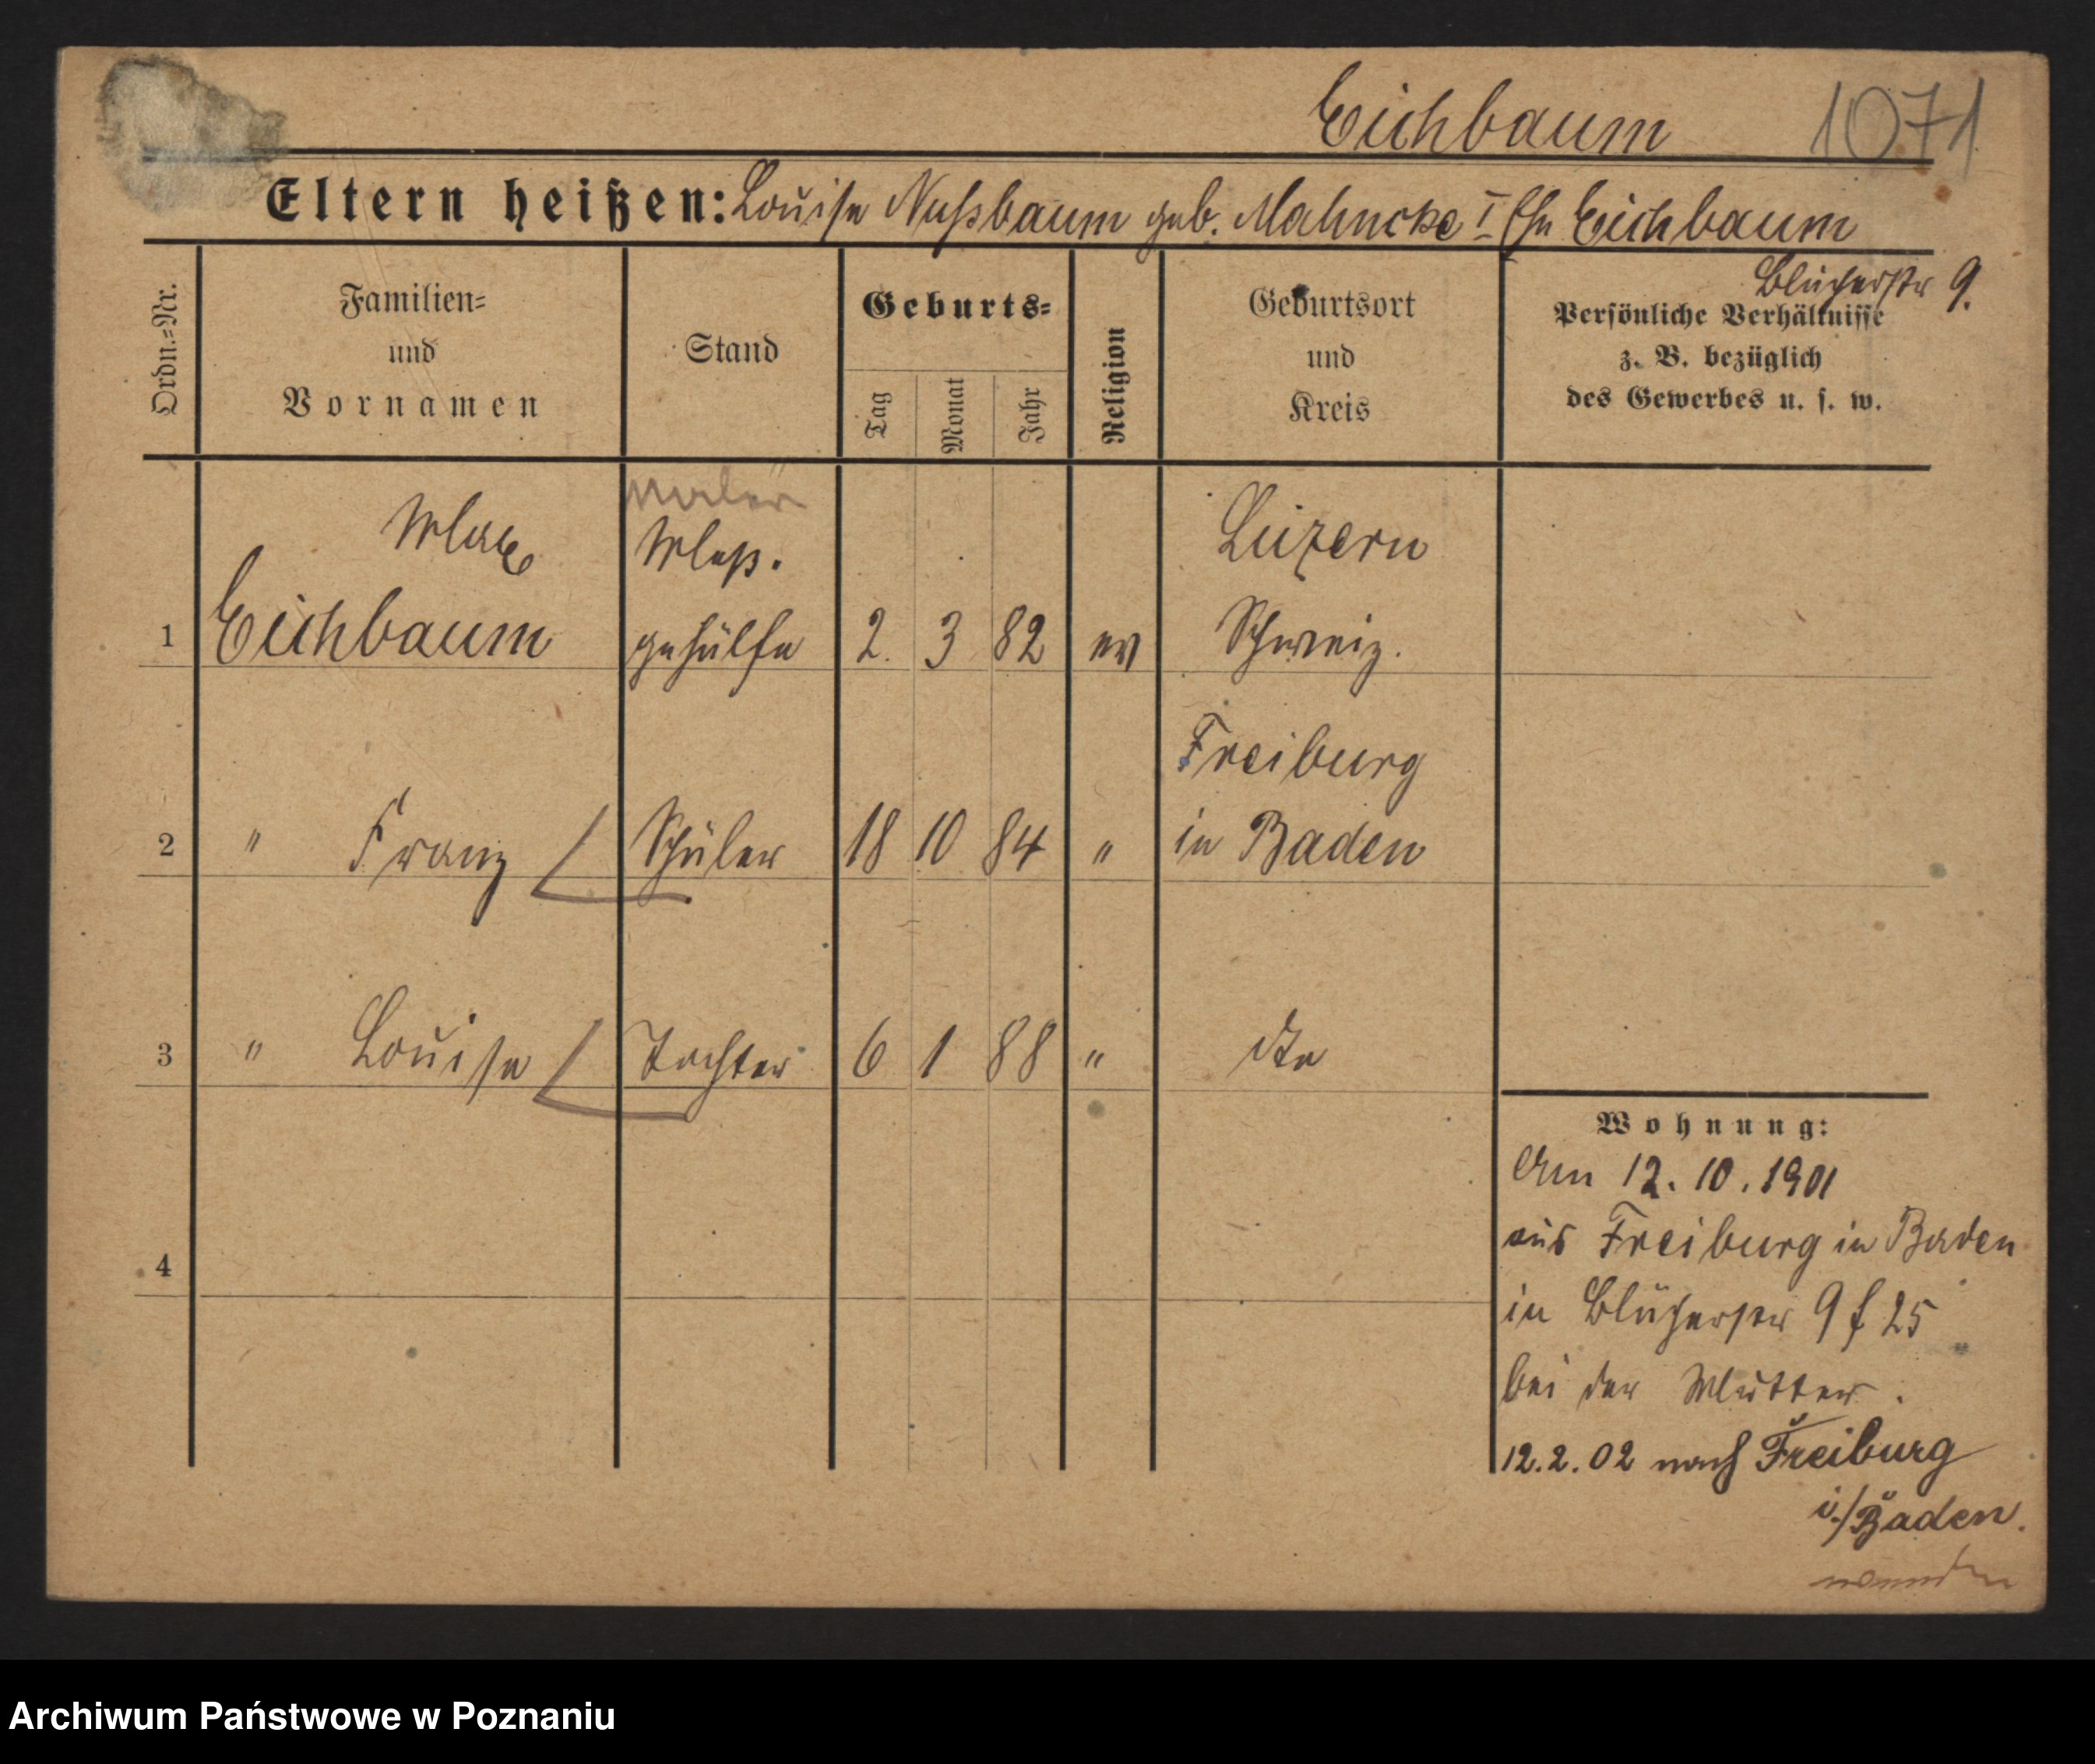 Eichbaum 1071
Eltern heißen: Louise Nußbaum geb. Mahncke I Ehe Eichbaum
Blücherstr 9.
Ordn.=Nr.
Familien=
und
Vornamen
Stand
Geburts=
Tag
Monat
Jahr
Religion
Geburtsort
und
Kreis
Persönliche Verhältnisse
z. B. bezüglich
des Gewerbes u. s. w.
Maler
Max
Luzern
1 Eichbaum gehülfe 2. 3 82 ev Schweiz.
Freiburg
2 " Franz Schüler 18 10 84 " in Baden
3 " Louise Tochter 6 1 88 " dto
4
Wohnung:
Am 12. 10. 1901
aus Freiburg in Baden
in Blücherstr 9 f 25
bei der Mutter.
12. 2. 02 nach Freiburg
i./Baden.
wenden
Archiwum Państwowe w Poznaniu